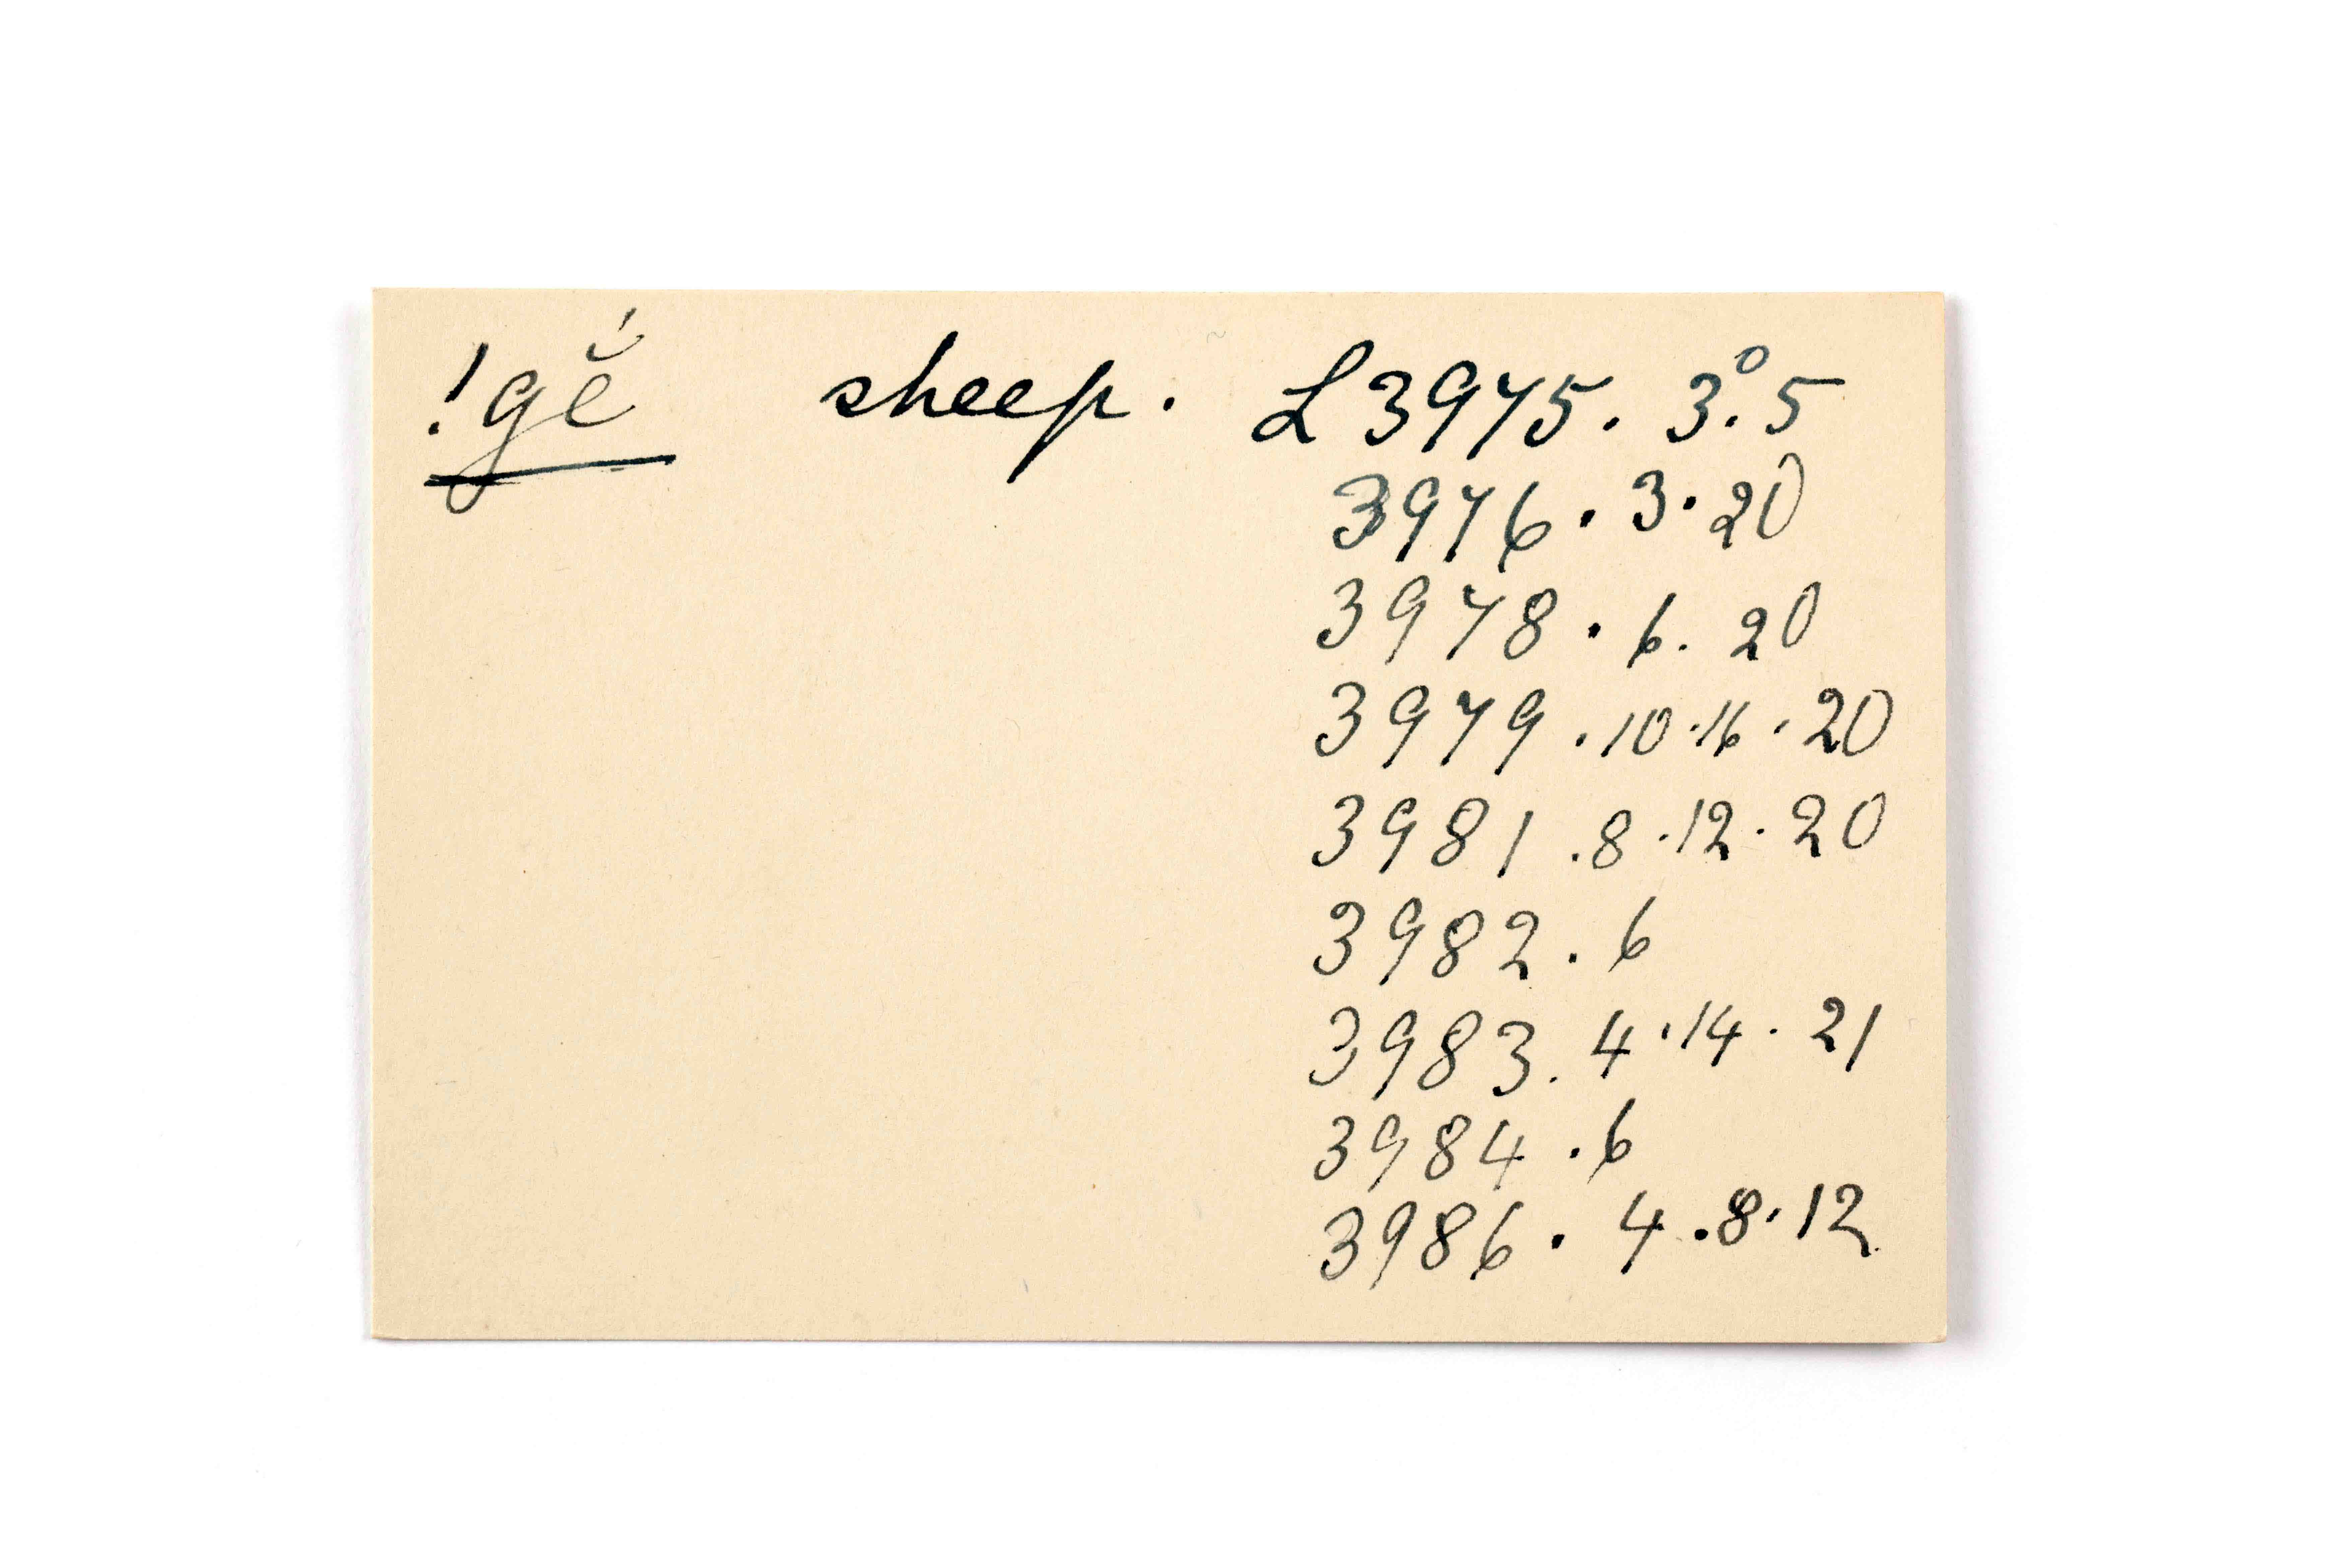 !gĕ́ sheep. L3975. 3⁰. 5
3976. 3. 20
3978. 6. 20
3979. 10. 16. 20
3981. 8. 12. 20
3982. 6
3983. 4. 14. 21
3984. 6
3986. 4. 8. 12